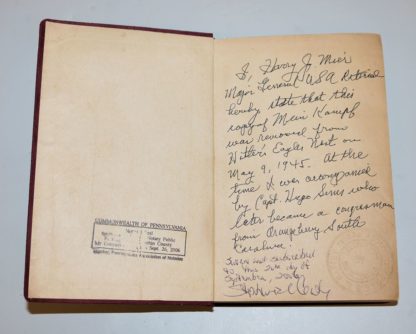 COMMONWEALTH OF PENNSYLVANIA
Notary Public
County
Sept. 26, 2006
Pennsylvania Association of Notaries
I, Harry J. Mier
Major General USA Retired
hereby state that this
copy of Mein Kampf
was removed from
Hitler's Eagles Nest on
May 9, 1945. At the
time I was accompanied
by Capt. Hugo Sims who
later became a congressman
from Orangeburg South
Carolina!
Sworn and subscribed
to this day of
September,